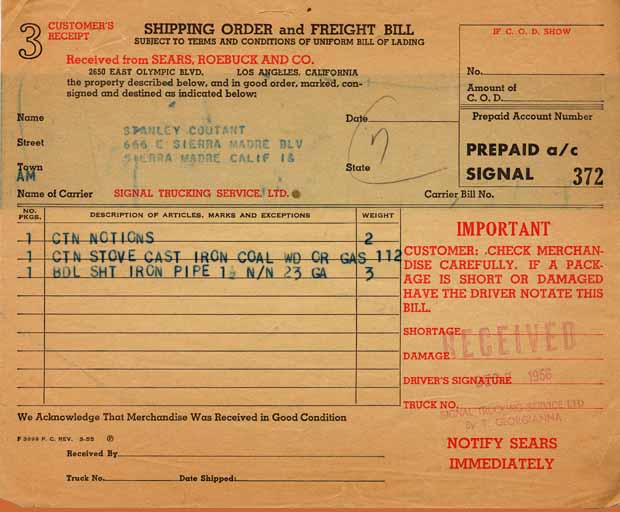 3
CUSTOMER'S
RECEIPT
SHIPPING ORDER and FREIGHT BILL
SUBJECT TO TERMS AND CONDITIONS OF UNIFORM BILL OF LADING
Received from SEARS, ROEBUCK AND CO.
2650 EAST OLYMPIC BLVD. LOS ANGELES, CALIFORNIA
the property described below, and in good order, marked, con-
signed and destined as indicated below:
IF C. O. D. SHOW
No.
Amount of
C. O. D.
Name STANLEY COUTANT Date
Street 666 E SIERRA MADRE BLV
Town SIERRA MADRE CALIF 18 State
AM
Prepaid Account Number
PREPAID a/c
SIGNAL 372
Name of Carrier SIGNAL TRUCKING SERVICE, LTD. Carrier Bill No.
NO. PKGS. DESCRIPTION OF ARTICLES, MARKS AND EXCEPTIONS WEIGHT
1 CTN NOTIONS 2
1 CTN STOVE CAST IRON COAL WD OR GAS 112
1 BDL SHT IRON PIPE 1½ N/N 23 GA 3
IMPORTANT
CUSTOMER: CHECK MERCHAN-
DISE CAREFULLY. IF A PACK-
AGE IS SHORT OR DAMAGED
HAVE THE DRIVER NOTATE THIS
BILL.
SHORTAGE
RECEIVED
DAMAGE
1956
DRIVER'S SIGNATURE
TRUCK NO.
SIGNAL TRUCKING SERVICE LTD
By T. GEORGIANNA
NOTIFY SEARS
IMMEDIATELY
We Acknowledge That Merchandise Was Received in Good Condition
F 3898 P. C. REV. 3-55 P
Received By
Truck No. Date Shipped: